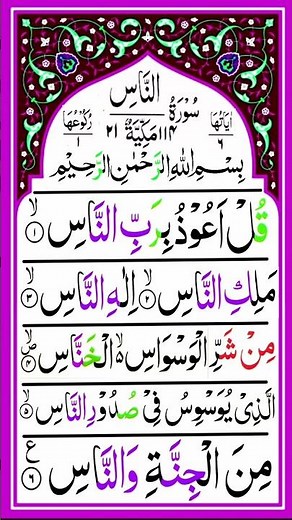 النَّاسِ
سُوْرَةُ
اٰيَاتُهَا ٦ ١١٤ مَكِّيَّةٌ ٢١ رُكُوْعُهَا ١
بِسْمِ اللّٰهِ الرَّحْمٰنِ الرَّحِيْمِ
قُلْ اَعُوْذُ بِرَبِّ النَّاسِ ۙ﴿١﴾
مَلِكِ النَّاسِ ۙ﴿٢﴾ اِلٰهِ النَّاسِ ۙ﴿٣﴾
مِنْ شَرِّ الْوَسْوَاسِ ۙ۬ الْخَنَّاسِ ۪ۙ﴿٤﴾
الَّذِیْ یُوَسْوِسُ فِیْ صُدُوْرِ النَّاسِ ۙ﴿٥﴾
مِنَ الْجِنَّةِ وَالنَّاسِ ﴿٦﴾ ع